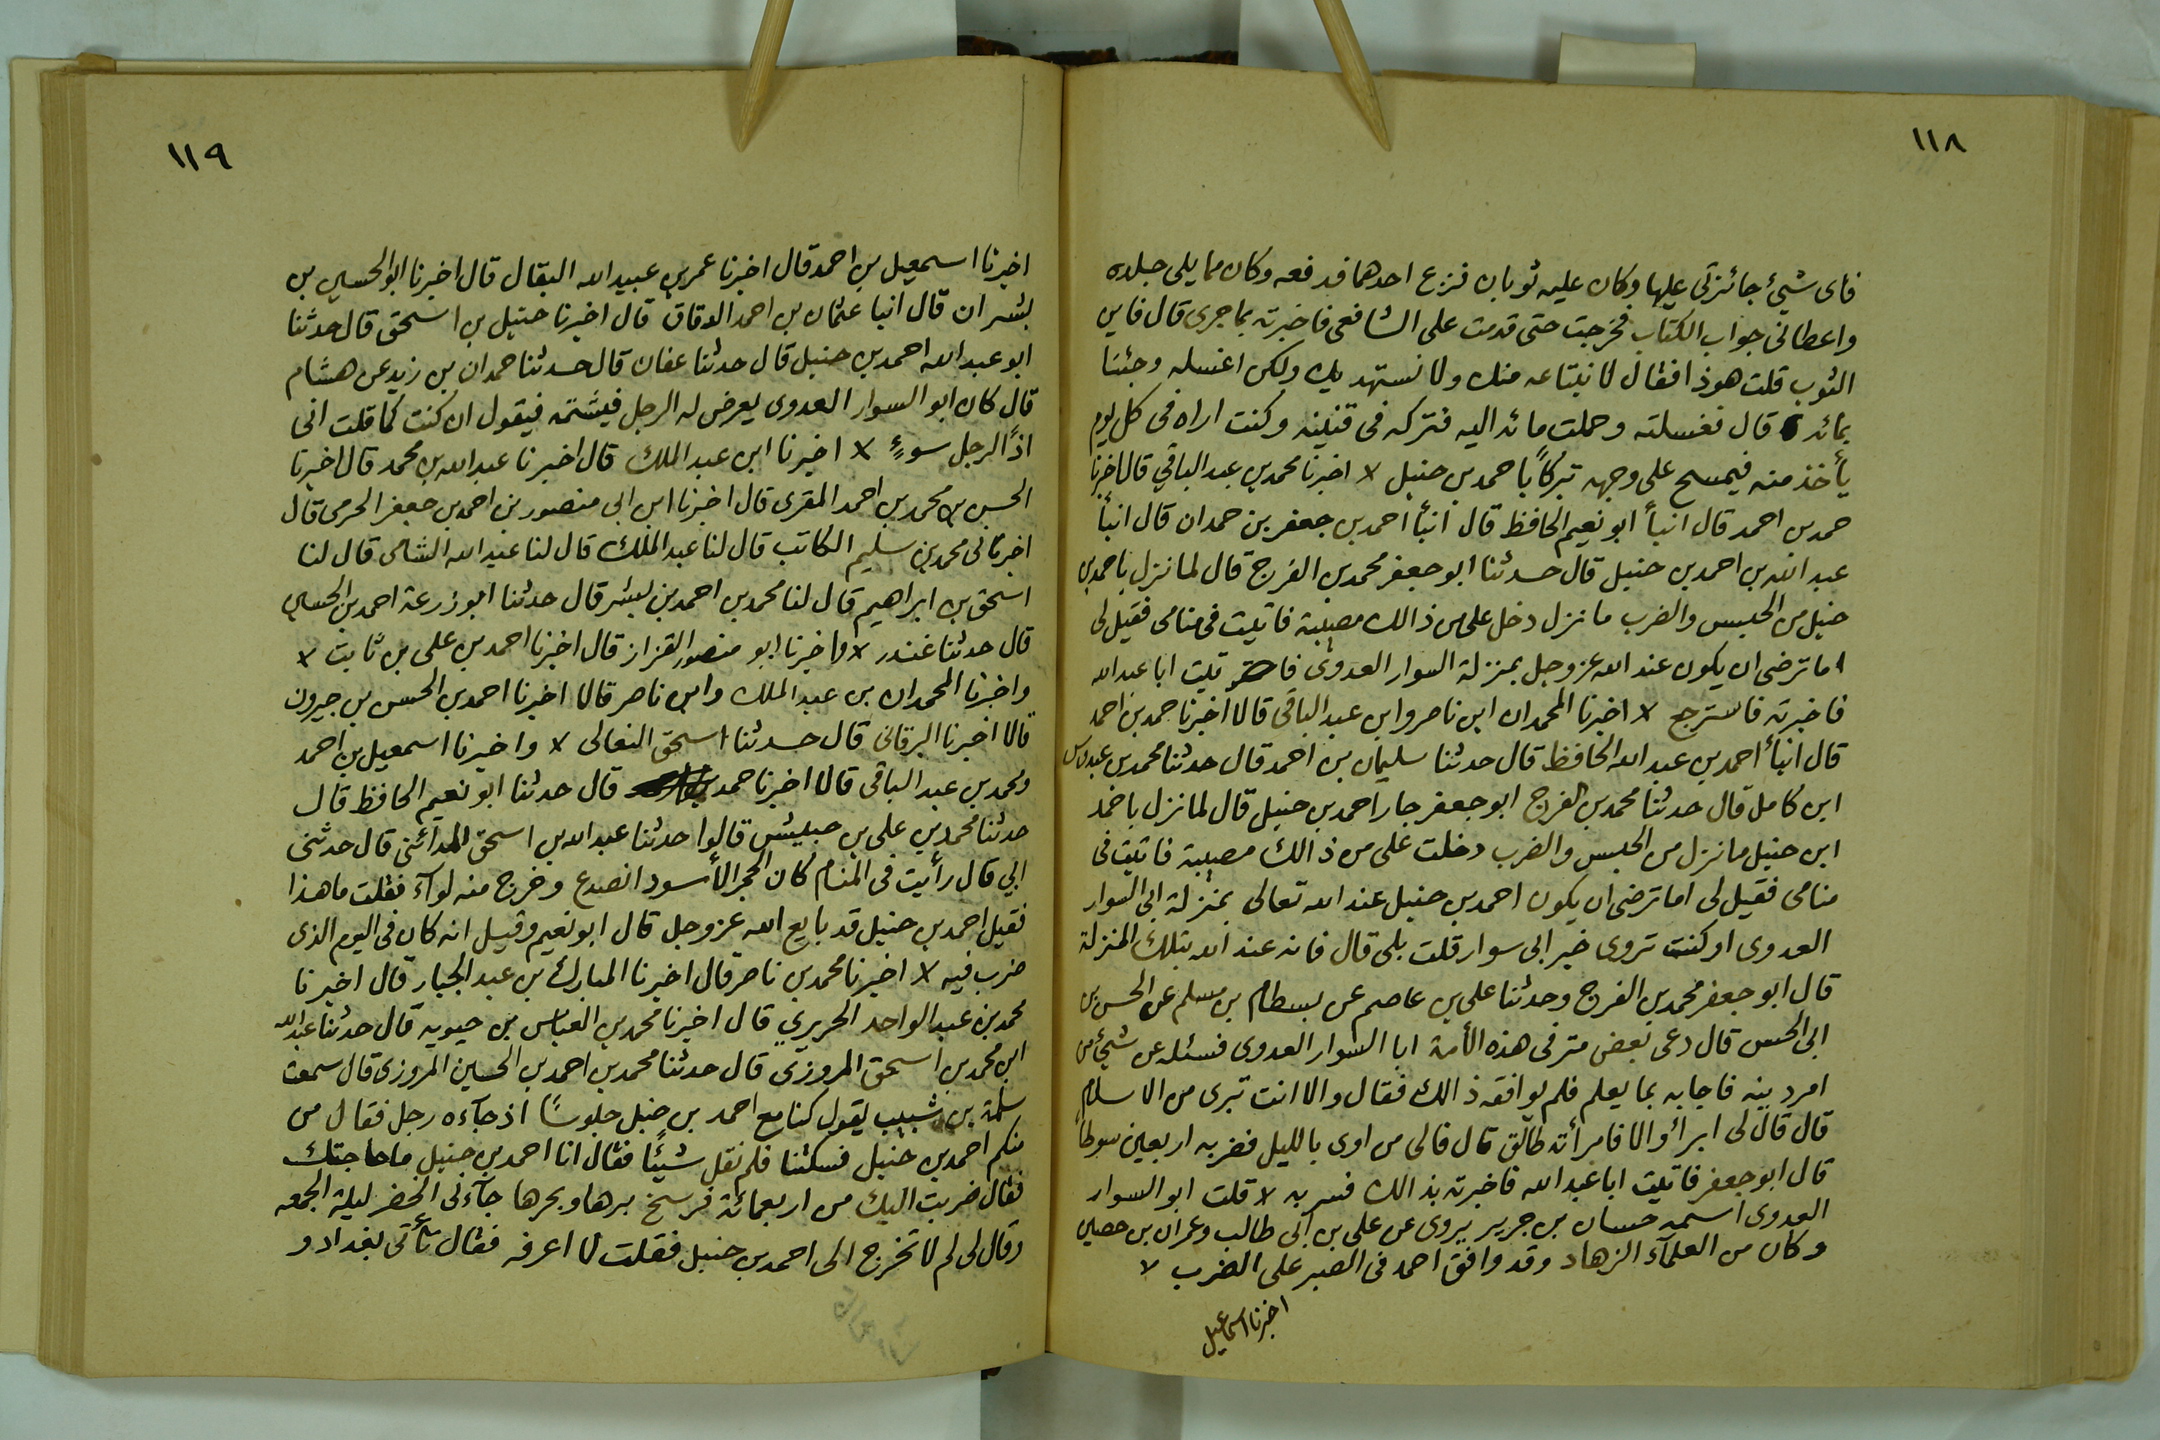 ١١٨
فاى شيئ جائزتى عليها وكان عليه ثوبان فنزع احدهما فدفعه وكان مما يلى جلده
واعطانى جواب الكتاب فخرجت حتى قدمت على الشافعى فاخبرته بماجرى قال فاين
الثوب قلت هوذا فقال لا نبتاعه منك ولا نستهديك ولكن اغسله وجئنا
بمائه قال فغسلته وحملت مائه اليه فتركه فى قنينه وكنت اراه فى كل يوم
يأخذ منه فيمسح على وجهه تبركاً باحمد بن حنبل لا اخبرنا محمد بن عبد الباقي قال اخبرنا
حمد بن احمد قال انبأ ابو نعيم الحافظ قال انبأ احمد بن جعفر بن حمدان قال انبأ
عبد الله بن احمد بن حنبل قال حدثنا ابو جعفر محمد بن الفرج قال لما نزل باحمد بن
حنبل من الحبس والضرب ما نزل دخل على من ذالك مصيبة فاتيت فى منامى فقيل لى
اما ترضى ان يكون عند الله عز وجل بمنزلة السوار العدوى فاتيت ابا عبد الله
فاخبرته فاسترجع لا اخبرنا المحمدان ابن ناصر وابن عبد الباقى قالا اخبرنا حمد بن احمد
قال انبأ احمد بن عبد الله الحافظ قال حدثنا سليمان بن احمد قال حدثنا محمد بن عبدوس
ابن كامل قال حدثنا محمد بن الفرج ابو جعفر جار احمد بن حنبل قال لما نزل باحمد
ابن حنبل ما نزل من الحبس والضرب دخلت على من ذالك مصيبة فاتيت فى
منامى فقيل لى اما ترضى ان يكون احمد بن حنبل عند الله تعالى بمنزلة ابى السوار
العدوى او كنت تروى خبر ابى سوار قلت بلى قال فانه عند الله بتلك المنزلة
قال ابو جعفر محمد بن الفرج وحدثنا على بن عاصم عن بسطام بن مسلم عن الحسن بن
ابى الحسن قال دعى بعض مترفى هذه الأمة ابا السوار العدوى فسئله عن شيئ من
امر دينه فاجابه بما يعلم فلم يوافقه ذالك فقال والا انت تبرى من الاسلام
قال قال لى ابرأ والا فامرأته طالق قال فالى من اوى بالليل فضربه اربعين سوطاً
قال ابو جعفر فاتيت ابا عبد الله فاخبرته بذالك فسر به لا قلت ابو السوار
العدوى اسمه حسان بن جرير يروى عن على بن أبى طالب وعمران بن حصين
وكان من العلمآء الزهاد وقد وافق احمد فى الصبر على الضرب لا
اخبرنا اسماعيل
١١٩
اخبرنا اسمعيل بن احمد قال اخبرنا عمر بن عبيد الله البقال قال اخبرنا ابو الحسين بن
بشران قال انبا عثمان بن احمد الدقاق قال اخبرنا حنبل بن اسحق قال حدثنا
ابو عبد الله احمد بن حنبل قال حدثنا عفان قال حدثنا حمدان بن زيد عن هشام
قال كان ابو السوار العدوى يعرض له الرجل فيشتمه فيقول ان كنت كما قلت انى
اذاً الرجل سوءٍ لا اخبرنا ابن عبد الملك قال اخبرنا عبد الله بن محمد قال اخبرنا
الحسن بن محمد بن احمد المقرى قال اخبرنا ابن ابى منصور بن احمد بن جعفر الحرمى قال
اخبرنا ابى محمد بن سليم الكاتب قال لنا عبد الملك قال لنا عبد الله الشامى قال لنا
اسحق بن ابراهيم قال لنا محمد بن احمد بن بشر قال حدثنا ابو زرعة احمد بن الحسين
قال حدثنا غندر لا واخبرنا ابو منصور القزاز قال اخبرنا احمد بن على بن ثابت لا
واخبرنا المحمدان بن عبد الملك وابن ناصر قالا اخبرنا احمد بن الحسن بن جيرون
قالا اخبرنا البرقانى قال حدثنا اسحق النعالى لا واخبرنا اسمعيل بن احمد
ومحمد بن عبد الباقى قالا اخبرنا حمد قال حدثنا ابو نعيم الحافظ قال
حدثنا محمد بن على بن حبيش قالوا حدثنا عبد الله بن اسحق المدائنى قال حدثنى
ابي قال رأيت فى المنام كان الحجر الأسود انصدع وخرج منه لوآء فقلت ما هذا
فقيل احمد بن حنبل قد بايع الله عز وجل قال ابو نعيم وقيل انه كان فى اليوم الذى
ضرب فيه لا اخبرنا محمد بن ناصر قال اخبرنا المبارك بن عبد الجبار قال اخبرنا
محمد بن عبد الواحد الحريري قال اخبرنا محمد بن العباس بن حيويه قال حدثنا عبد الله
ابن محمد بن اسحق المروزى قال حدثنا محمد بن احمد بن الحسين المروزى قال سمعت
سلمة بن شبيب يقول كنا مع احمد بن حنبل جلوسًا اذ جآءه رجل فقال من
منكم احمد بن حنبل فسكتنا فلم نقل شيئًا فقال انا احمد بن حنبل ما حاجتك
فقال ضربت اليك من اربعمائة فرسخ برها وبحرها جآءنى الخضر ليلة الجمعه
وقال لى لم لا تخرج الى احمد بن حنبل فقلت لا اعرفه فقال تأتى بغداد و